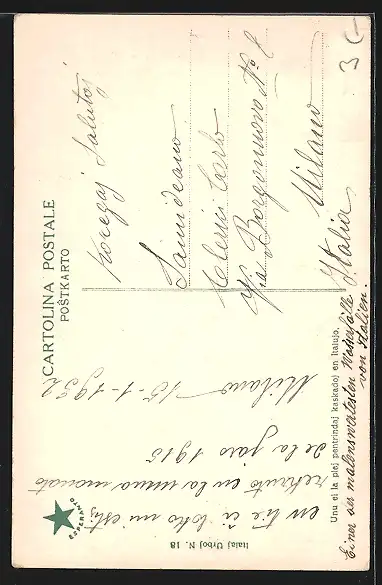 CARTOLINA POSTALE
POŜTKARTO
ESPERANTO
Milano 15-1-1932
en tie ĉi loko mi estis
en la unua monato
de la jaro 1915
Koregaj Salutoj
Samideano
Clerici Carlo
Via Borgonuovo No 2
Milano
Italia
3
Italaj Urboj N. 18
Unu el la plej pentrindaj kaskadoj en Italujo.
Einer der malenswertesten Wasserfälle
von Italien.